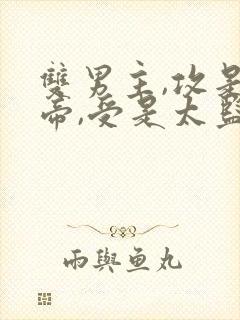 雙男主,攻是
帝,受是太監
雨與魚丸